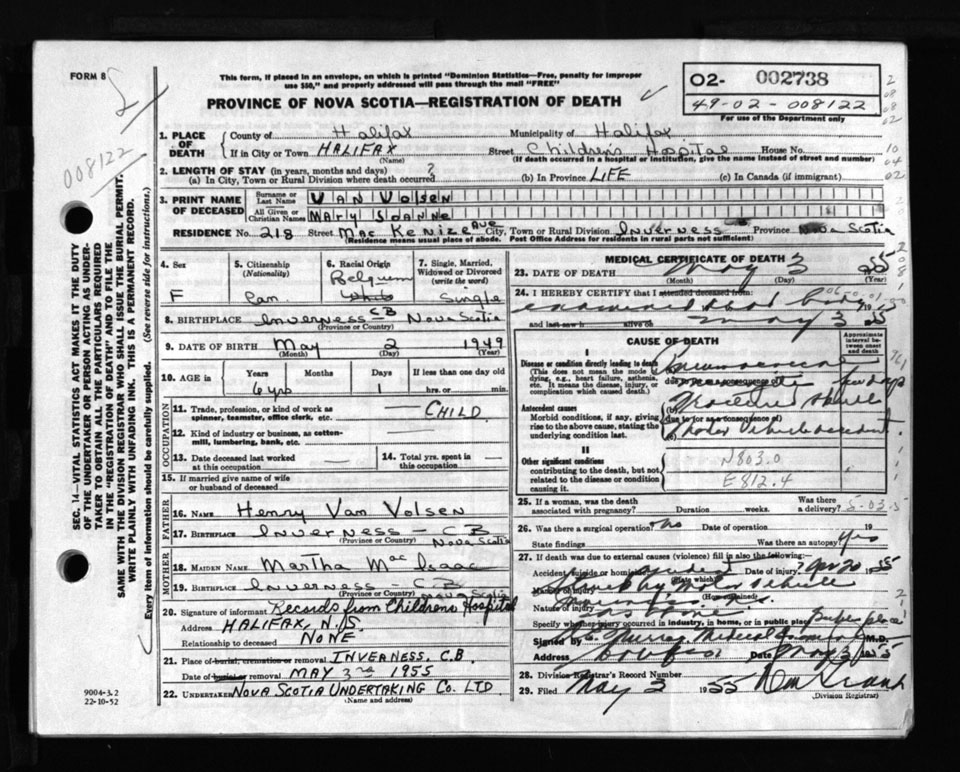 FORM 8
This form, if placed in an envelope, on which is printed "Dominion Statistics—Free, penalty for improper
use $50," and properly addressed will pass through the mail "FREE"
PROVINCE OF NOVA SCOTIA—REGISTRATION OF DEATH
02- 002738
49-02-008122
For use of the Department only
008122
1. PLACE OF DEATH
County of Halifax Municipality of Halifax
If in City or Town HALIFAX Street Children's Hospital House No.
(Name) (If death occurred in a hospital or institution, give the name instead of street and number)
2. LENGTH OF STAY (in years, months and days)
(a) In City, Town or Rural Division where death occurred ? (b) In Province LIFE (c) In Canada (if immigrant)
3. PRINT NAME OF DECEASED
Surname or Last Name VAN VOLSEN
All Given or Christian Names MARY JOANNE
RESIDENCE No. 218 Street Mac Kenize Ave City, Town or Rural Division Inverness Province Nova Scotia
(Residence means usual place of abode. Post Office Address for residents in rural parts not sufficient)
4. Sex F
5. Citizenship (Nationality) Can.
6. Racial Origin Belgium White
7. Single, Married, Widowed or Divorced (write the word) Single
8. BIRTHPLACE Inverness CB Nova Scotia
(Province or Country)
9. DATE OF BIRTH May 2 1949
(Month) (Day) (Year)
10. AGE in Years Months Days If less than one day old
6 yrs 1 hrs. or min.
OCCUPATION
11. Trade, profession, or kind of work as spinner, teamster, office clerk, etc. — CHILD
12. Kind of industry or business, as cotton-mill, lumbering, bank, etc. —
13. Date deceased last worked at this occupation —
14. Total yrs. spent in this occupation —
15. If married give name of wife or husband of deceased
FATHER
16. NAME Henry Van Volsen
17. BIRTHPLACE Inverness - CB Nova Scotia
(Province or Country)
MOTHER
18. MAIDEN NAME Martha Mac Isaac
19. BIRTHPLACE Inverness - CB Nova Scotia
(Province or Country)
20. Signature of informant Records from Childrens Hospital
Address HALIFAX, N.S.
Relationship to deceased NONE
21. Place of burial, cremation or removal INVERNESS, C.B.
Date of burial or removal MAY 3rd 1955
22. UNDERTAKER NOVA SCOTIA UNDERTAKING CO. LTD.
(Name and address)
9004-3.2
22-10-52
SEC. 14—VITAL STATISTICS ACT MAKES IT THE DUTY
OF THE UNDERTAKER OR PERSON ACTING AS UNDER-
TAKER TO OBTAIN ALL THE PARTICULARS REQUIRED
IN THE "REGISTRATION OF DEATH" AND TO FILE THE
SAME WITH THE DIVISION REGISTRAR WHO SHALL ISSUE THE BURIAL PERMIT.
WRITE PLAINLY WITH UNFADING INK. THIS IS A PERMANENT RECORD.
Every item of information should be carefully supplied. (See reverse side for instructions.)
MEDICAL CERTIFICATE OF DEATH
23. DATE OF DEATH May 3 1955
(Month) (Day) (Year)
24. I HEREBY CERTIFY that I attended deceased from:
examined dead body
and last saw is alive on May 3 1955
CAUSE OF DEATH
Approximate interval between onset and death
I
Disease or condition directly leading to death
(This does not mean the mode of dying, e.g., heart failure, asthenia, etc. It means the disease, injury, or complication which caused death.)
due to (or as a consequence of) few days
Antecedent causes
Morbid conditions, if any, giving rise to the above cause, stating the underlying condition last.
Fractured skull
due to (or as a consequence of)
(c) Motor Vehicle accident.
II
Other significant conditions
contributing to the death, but not related to the disease or condition causing it.
N803.0
E812.4
25. If a woman, was the death associated with pregnancy? Duration weeks. Was there a delivery? 5-03-5
26. Was there a surgical operation? no Date of operation 19
State findings Was there an autopsy? yes
27. If death was due to external causes (violence) fill in also the following:—
Accident, suicide or homicide? Accident Date of injury? Apr 20 1955
(State which)
Manner of injury Struck by Motor Vehicle
(How sustained)
Nature of injury
Specify whether injury occurred in industry, in home, or in public place Public place
Signed by Murray Medical Examiner M.D.
Address Halifax Date May 3 1955
28. Division Registrar's Record Number
29. Filed May 3 1955
(Division Registrar)